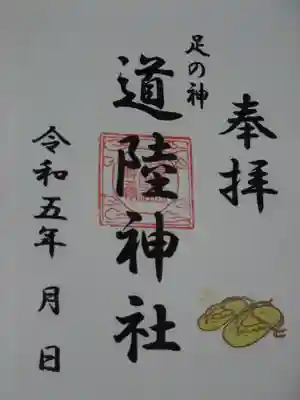 奉拝
足の神
道陸神社
令和五年 月 日